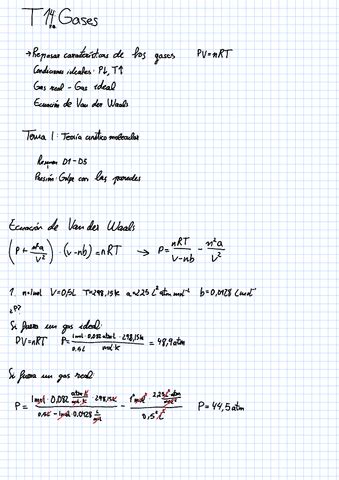 T 14 Gases
→ Repasar características de los gases PV=nRT
Condiciones ideales: P↓, T↑
Gas real - Gas ideal
Ecuación de Van der Waals
Tema 1: Teoría cinético molecular
Repasar D1-D5
Presión: Golpe con las paredes
Ecuación de Van der Waals
(P + n²a/V²) · (V-nb) = nRT → P = nRT/V-nb - n²a/V²
1. n=1mol V=0,5L T=298,15K a=2,25 L² atm mol⁻² b=0,0428 L mol⁻¹
¿P?
Si fuera un gas ideal
PV=nRT P = 1mol · 0,082 atm L · 298,15K / 0,5L mol·K = 48,9 atm
Si fuera un gas real
P = 1mol · 0,082 atm·L/mol·K · 298,15K / 0,5L - 1mol · 0,0428 L/mol - 1² mol² · 2,25 L² atm/mol² / 0,5² L² P = 44,5 atm